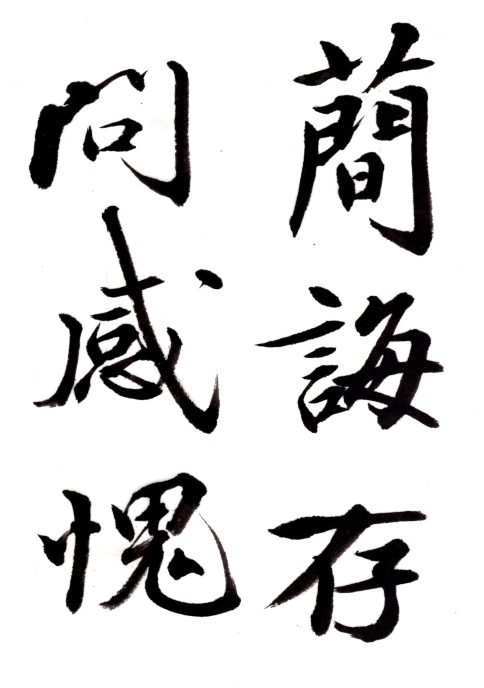 蕳誨存
問感愧